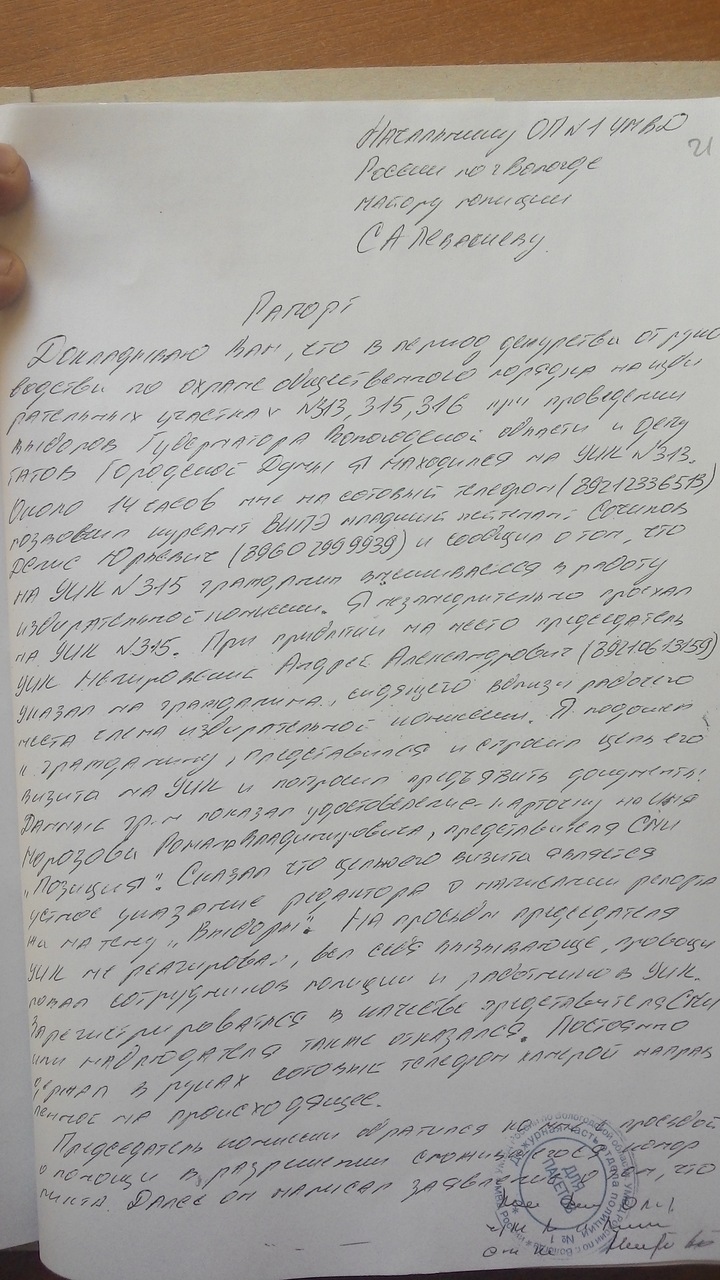 Начальнику ОП №1 УМВД
России по г Вологде
майору полиции
С А Левашеву
21
Рапорт
Докладываю Вам, что в период дежурства от руко
водства по охране общественного порядка на изби
рательных участках №313, 315, 316 при проведении
выборов Губернатора Вологодской области и депу
татов Городской Думы я находился на УИК №313.
Около 14 часов мне на сотовый телефон (89212336513)
позвонил курсант ВИПЭ младший лейтенант
Денис Юрьевич (89602999939) и сообщил о том, что
на УИК №315 гражданин вмешивается в работу
избирательной комиссии. Я незамедлительно проехал
на УИК №315. При прибытии на место председатель
УИК Андрей Александрович (89210613159)
указал на гражданина, сидящего вблизи рабочего
места члена избирательной комиссии. Я подошел
к гражданину, представился и спросил цель его
визита на УИК и попросил предъявить документы.
Данный гр-н показал удостоверение-карточку на имя
Морозова Романа Владимировича, представителя СМИ
„Позиция". Сказал что целью его визита является
устное указание редактора о написании репорта
жа на тему „Выборы". На просьбы председателя
УИК не реагировал, вел себя вызывающе, провоци
ровал сотрудников полиции и работников УИК.
Зарегистрироваться в качестве представителя СМИ
или наблюдателя также отказался. Постоянно
держал в руках сотовый телефон камерой направ
ленной на происходящее.
Председатель комиссии обратился ко мне с просьбой
о помощи в разрешении сложившегося конф
ликта. Далее он написал заявление о том, что
Дежурная часть отдела полиции № 1
ДЛЯ
ПАКЕТОВ